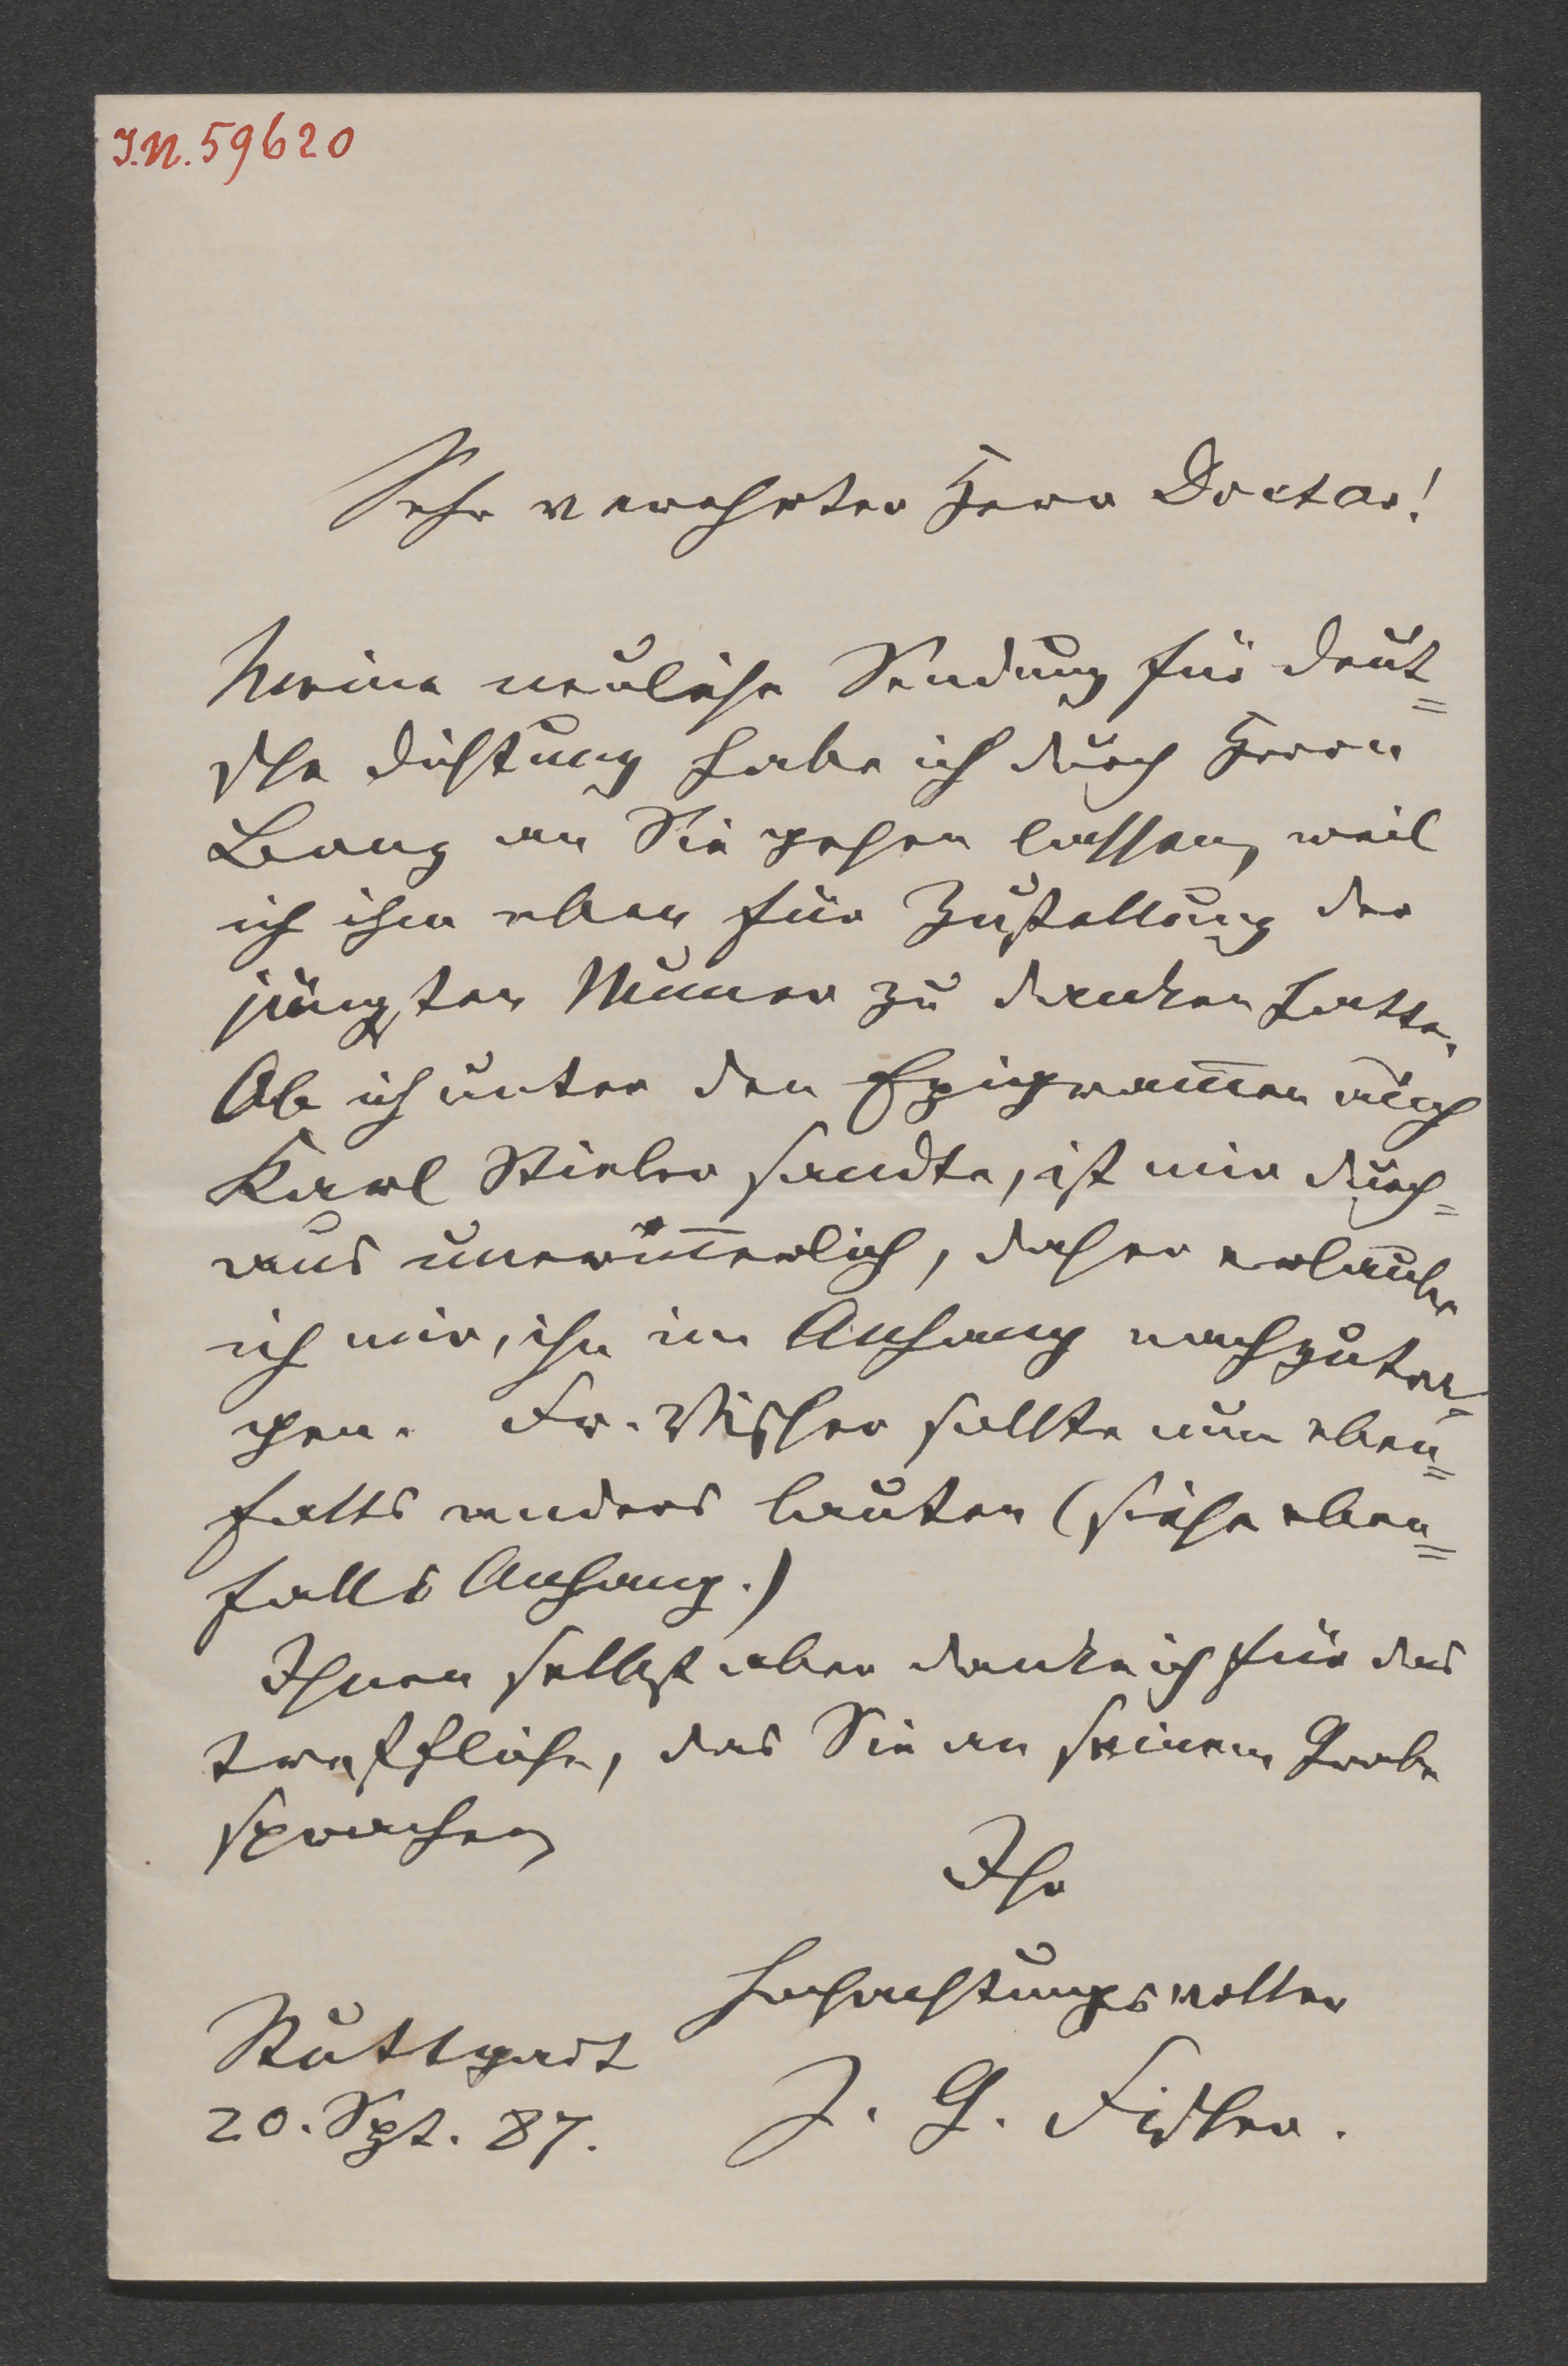 I.N. 59620
Sehr verehrter Herr Doctor!
Meine neuliche Sendung für deut=
sche Dichtung habe ich durch Herrn
Lang an Sie gehen lassen, weil
ich ihm eben für Zustellung der
jüngsten Num̅er zu danken hatte.
Ob ich unter den Epigram̅en auch
Karl Stieler sandte, ist mir durch=
aus unerin̅erlich, daher erlaube
ich mir, ihn im Anhang nachzutra=
gen. Fr. Vischer sollte nun eben=
falls anders lauten (siehe eben=
falls Anhang.)
Ihnen selbst aber danke ich für das
treffliche, das Sie an seinem Grabe
sprachen
Ihr
hochachtungsvoller
Stuttgart
J. G. Fischer.
20. Spt. 87.